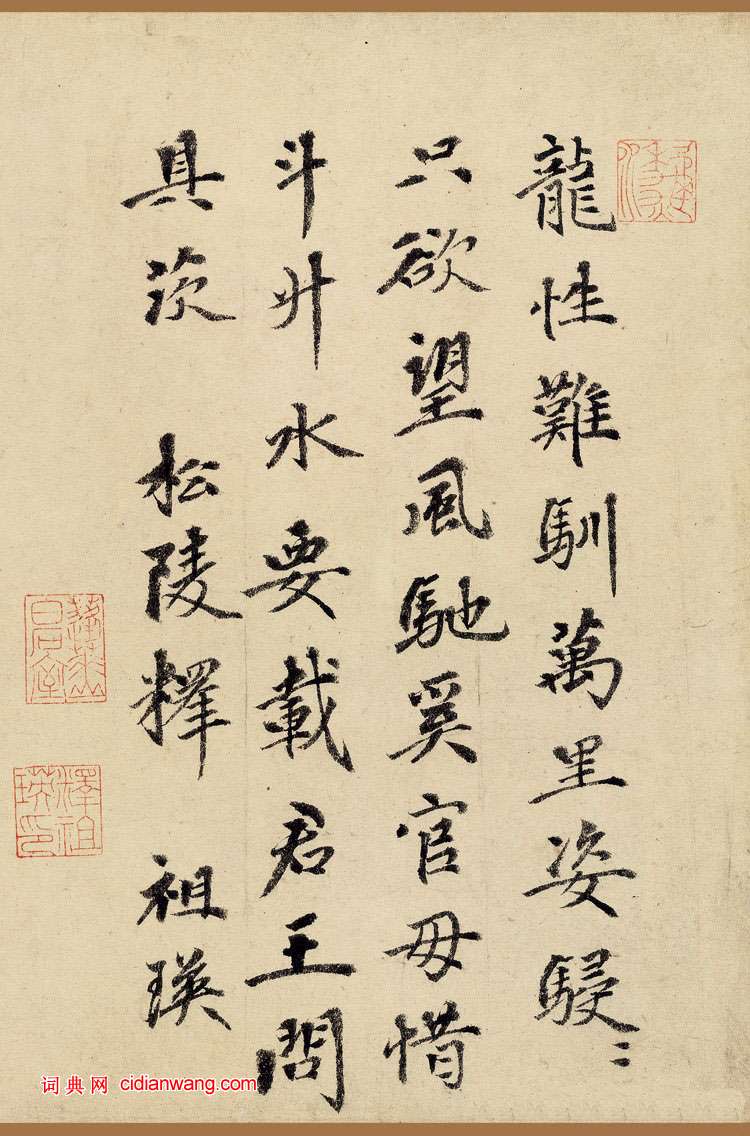 龍性難馴萬里姿駸〻
只欲望風馳奚官毋惜
斗升水要載君王問
具茨 松陵釋 祖瑛
釋祖瑛印
词典网 cidianwang.com